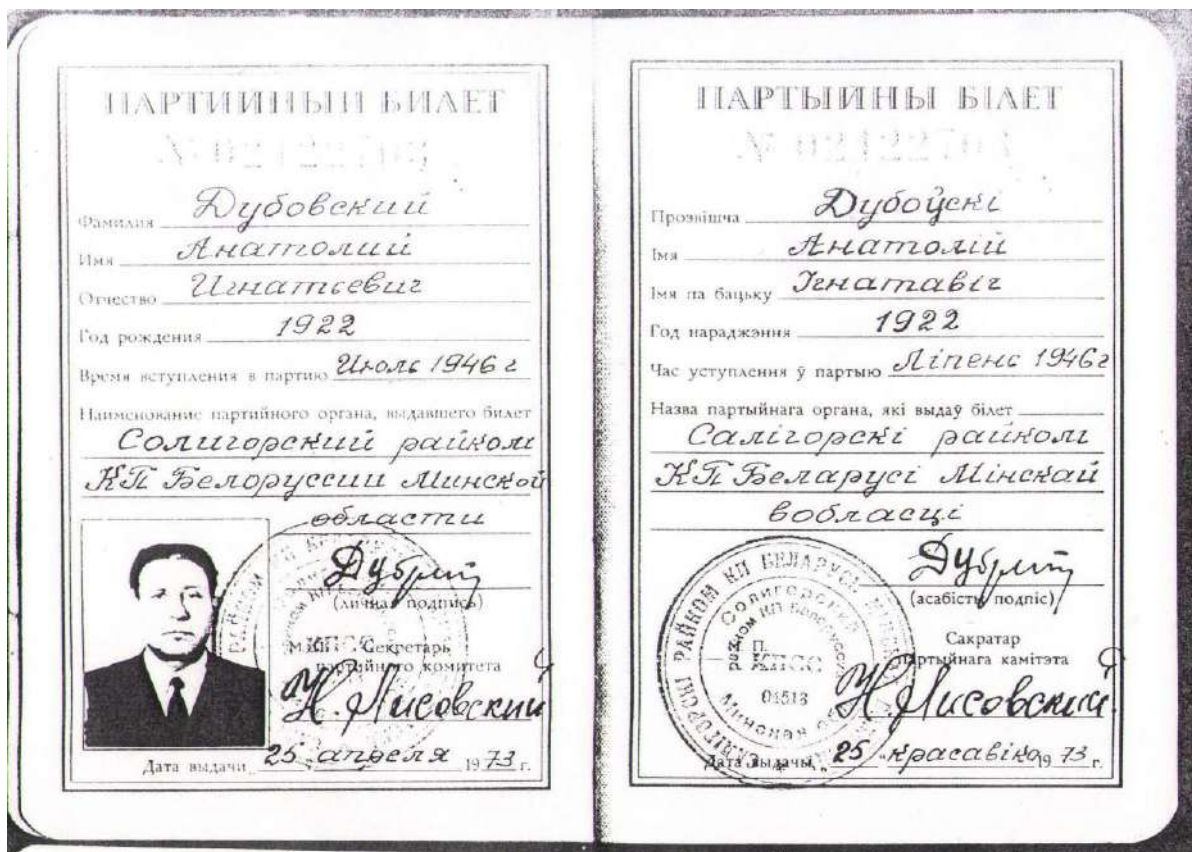 ПАРТИЙНЫЙ БИЛЕТ
№ 02122703
Фамилия Дубовский
Имя Анатолий
Отчество Игнатьевич
Год рождения 1922
Время вступления в партию Июль 1946 г
Наименование партийного органа, выдавшего билет
Солигорский райком
КП Белоруссии Минской
области
(личная подпись)
М. П. Секретарь
партийного комитета
Н. Лисовский
Дата выдачи „25" апреля 1973 г.
ПАРТЫЙНЫ БІЛЕТ
№ 02122703
Прозвішча Дубоўскі
Імя Анатолій
Імя па бацьку Ігнатавіч
Год нараджэння 1922
Час уступлення ў партыю Ліпень 1946 г
Назва партыйнага органа, які выдаў білет
Салігорскі райком
КП Беларусі Мінскай
вобласці
(асабісты подпіс)
М. П.
Сакратар
партыйнага камітэта
Н. Лисовский
САЛІГОРСКІ РАЙКОМ КП БЕЛАРУСІ
Солигорский
райком КП Белоруссии
КПСС
04513
Минская
Дата выдачы „25" красавіка 1973 г.